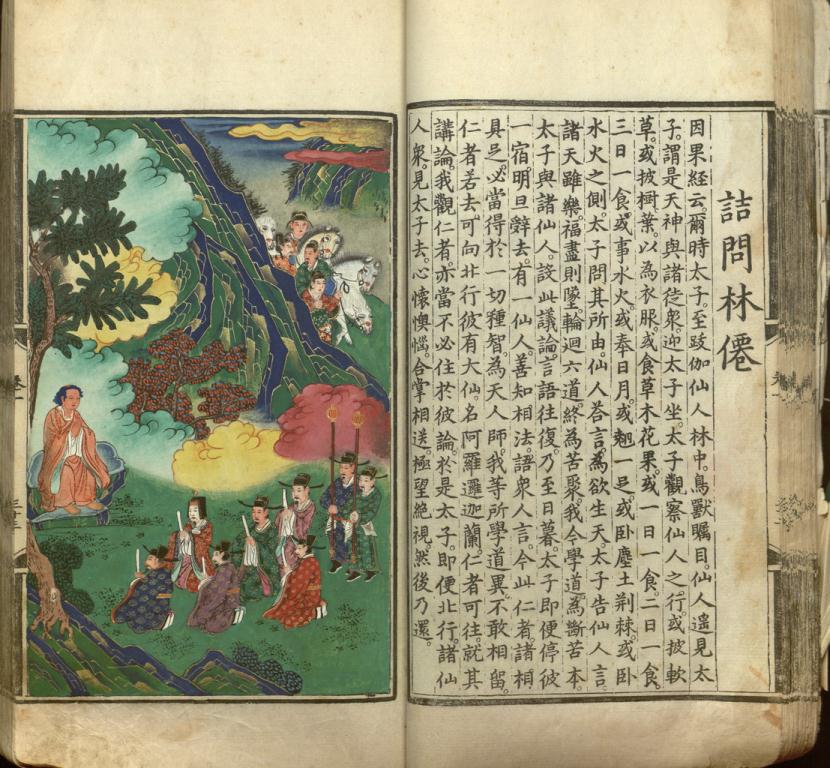 詰問林僊
因果經云。爾時太子。至跋伽仙人林中。鳥獸矚目。仙人遥見太
子。謂是天神與諸從衆。迎太子坐。太子觀察仙人之行。或披軟
草。或披樹葉。以為衣服。或食草木花果。或一日一食。二日一食。
三日一食。或事水火。或奉日月。或翹一足。或卧塵土荆棘。或卧
水火之側。太子問其所由。仙人答言。為欲生天。太子告仙人言。
諸天雖樂。福盡則墜。輪迴六道。終為苦聚。我今學道。為斷苦本。
太子與諸仙人。談此議論。言語往復。乃至日暮。太子即便停彼
一宿。明旦辭去。有一仙人。善知相法。語衆人言。今此仁者。諸相
具足。必當得於一切種智。為天人師。我等所學道異。不敢相留。
仁者若去。可向北行。彼有大仙。名阿羅邏迦蘭。仁者可往。就其
講論。我觀仁者。亦當不必住於彼論。於是太子。即便北行。諸仙
人衆。見太子去。心懷懊惱。合掌相送。極望絶視。然後乃還。